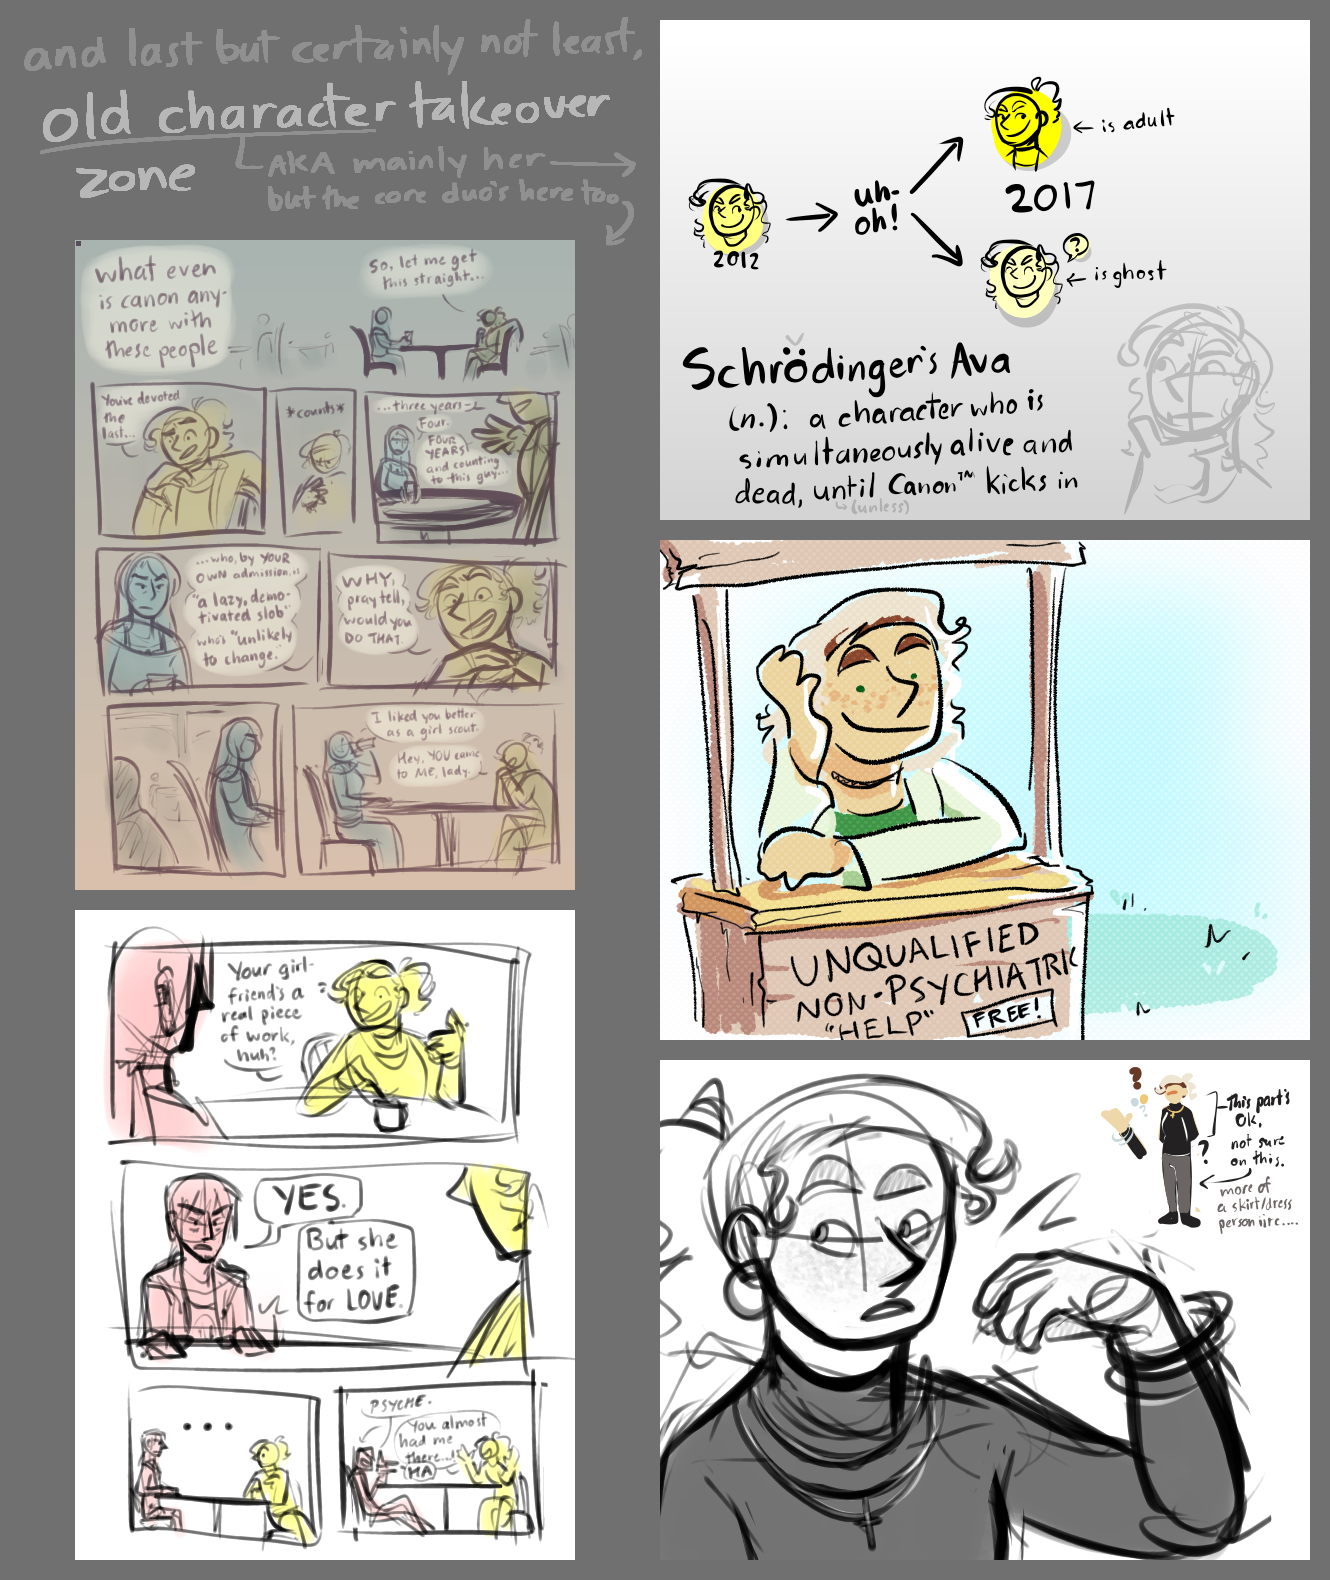 and last but certainly not least,
old character takeover
zone
AKA mainly her
but the core duo's here too
what even
is canon any-
more with
these people
So, let me get
this straight...
You've devoted
the
last...
*counts*
...three years-
Four.
FOUR
YEARS!
and counting
to this guy...
...who, by YOUR
OWN admission, is
"a lazy, demo-
tivated slob"
who's "unlikely
to change."
WHY,
pray tell,
would you
DO THAT.
I liked you better
as a girl scout.
Hey, YOU came
to ME, lady.
Your girl-
friend's a
real piece
of work,
huh?
YES.
But she
does it
for LOVE.
...
PSYCHE.
You almost
had me
there...!
HA
2012
uh-
oh!
← is adult
2017
?
← is ghost
Schrödinger's Ava
(n.): a character who is
simultaneously alive and
dead, until Canon™ kicks in
(unless)
UNQUALIFIED
NON-PSYCHIATRIC
"HELP"
FREE!
?
This part's
OK,
?
not sure
on this.
more of
a skirt/dress
person